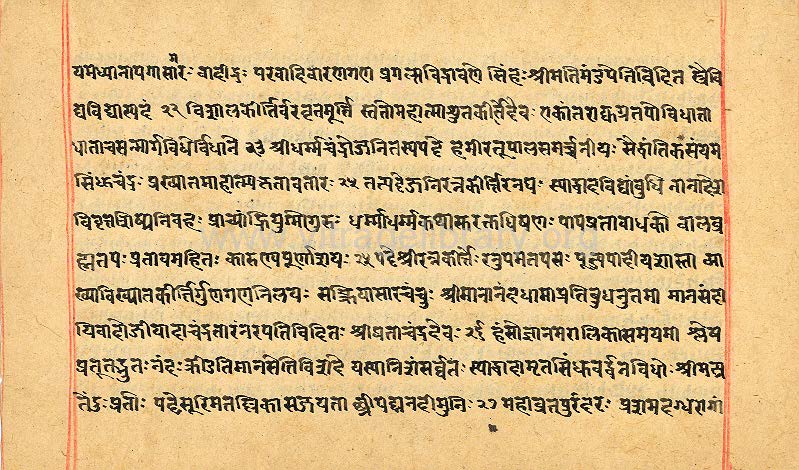 यमध्यानापगासारैः वादींद्रः परवादिवारणगण प्रागल्भविद्रावणे सिंहः श्रीमतिमंडपेतिविदित स्त्रैवि
द्यविद्यास्पदं २२ विशालकीर्त्तिर्वरवृतमूर्त्ति स्ततोमहात्माशुभकीर्त्तिदेवः एकांतराद्युग्रतपोविधाता
धातावसन्मार्गविधेर्विधाने २३ श्रीधर्म्मचंद्रोजनितस्यपट्टे हमीरभूपालसमर्चनीयः सैद्धांतिकसंयम
सिंधुचंद्रः प्रख्यातमाहात्म्यकृतावतारः २४ तत्पट्टेजनिरत्नकीर्त्तिरनघः स्याद्वादविद्यांबुधि नानादेश
शिष्यनिवहः धर्म्माधर्म्मकथासुरक्तधिषणः पापप्रभावाधको बालब्र
ह्मतपः प्रभावमहितः कारुण्यपूर्णाशयः २५ पट्टेश्रीरत्नकीर्त्ते रनुपमतपसः पूज्यपादीयशास्त्रा व्या
ख्याविख्यातकीर्त्तिर्गुणगणनिलयः श्रीमानानंदधामाप्रतिबुधनुतमा मानसंदा
यिवादोजीयादाचंद्रतारंनरपतिविदितः श्रीप्रभाचंद्रदेवः २६ हंसोज्ञानमरालिकासमयमा श्लेष
प्रभूताद्भुतानंदः क्रीडतिमानसेतिविशदे यस्यानिशंसर्वतः स्याद्वादामृतसिंधुवर्द्धनविधौ श्रीमत्प्र
भेंदुः प्रभौः पट्टेसूरिमतल्लिकासजयता श्रीपद्मनंदीमुनिः २७ महाव्रतपुरंदरः प्रशमदग्धरागां